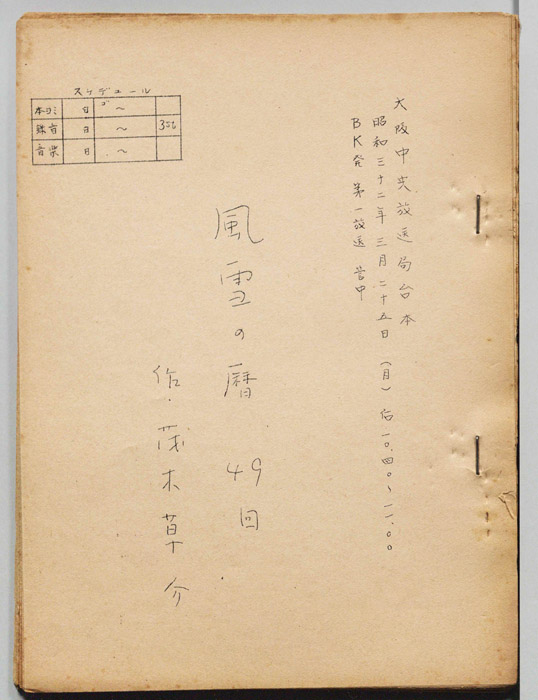 大阪中央放送局台本
昭和三十二年 三月二十五日 (月) 后一〇.四〇〜一一.〇〇
BK発 第一放送 管中
風雪の暦 49回
作・茂木草介
スケデュール
本ヨミ 日 〜
録音 日 〜
音楽 日 〜